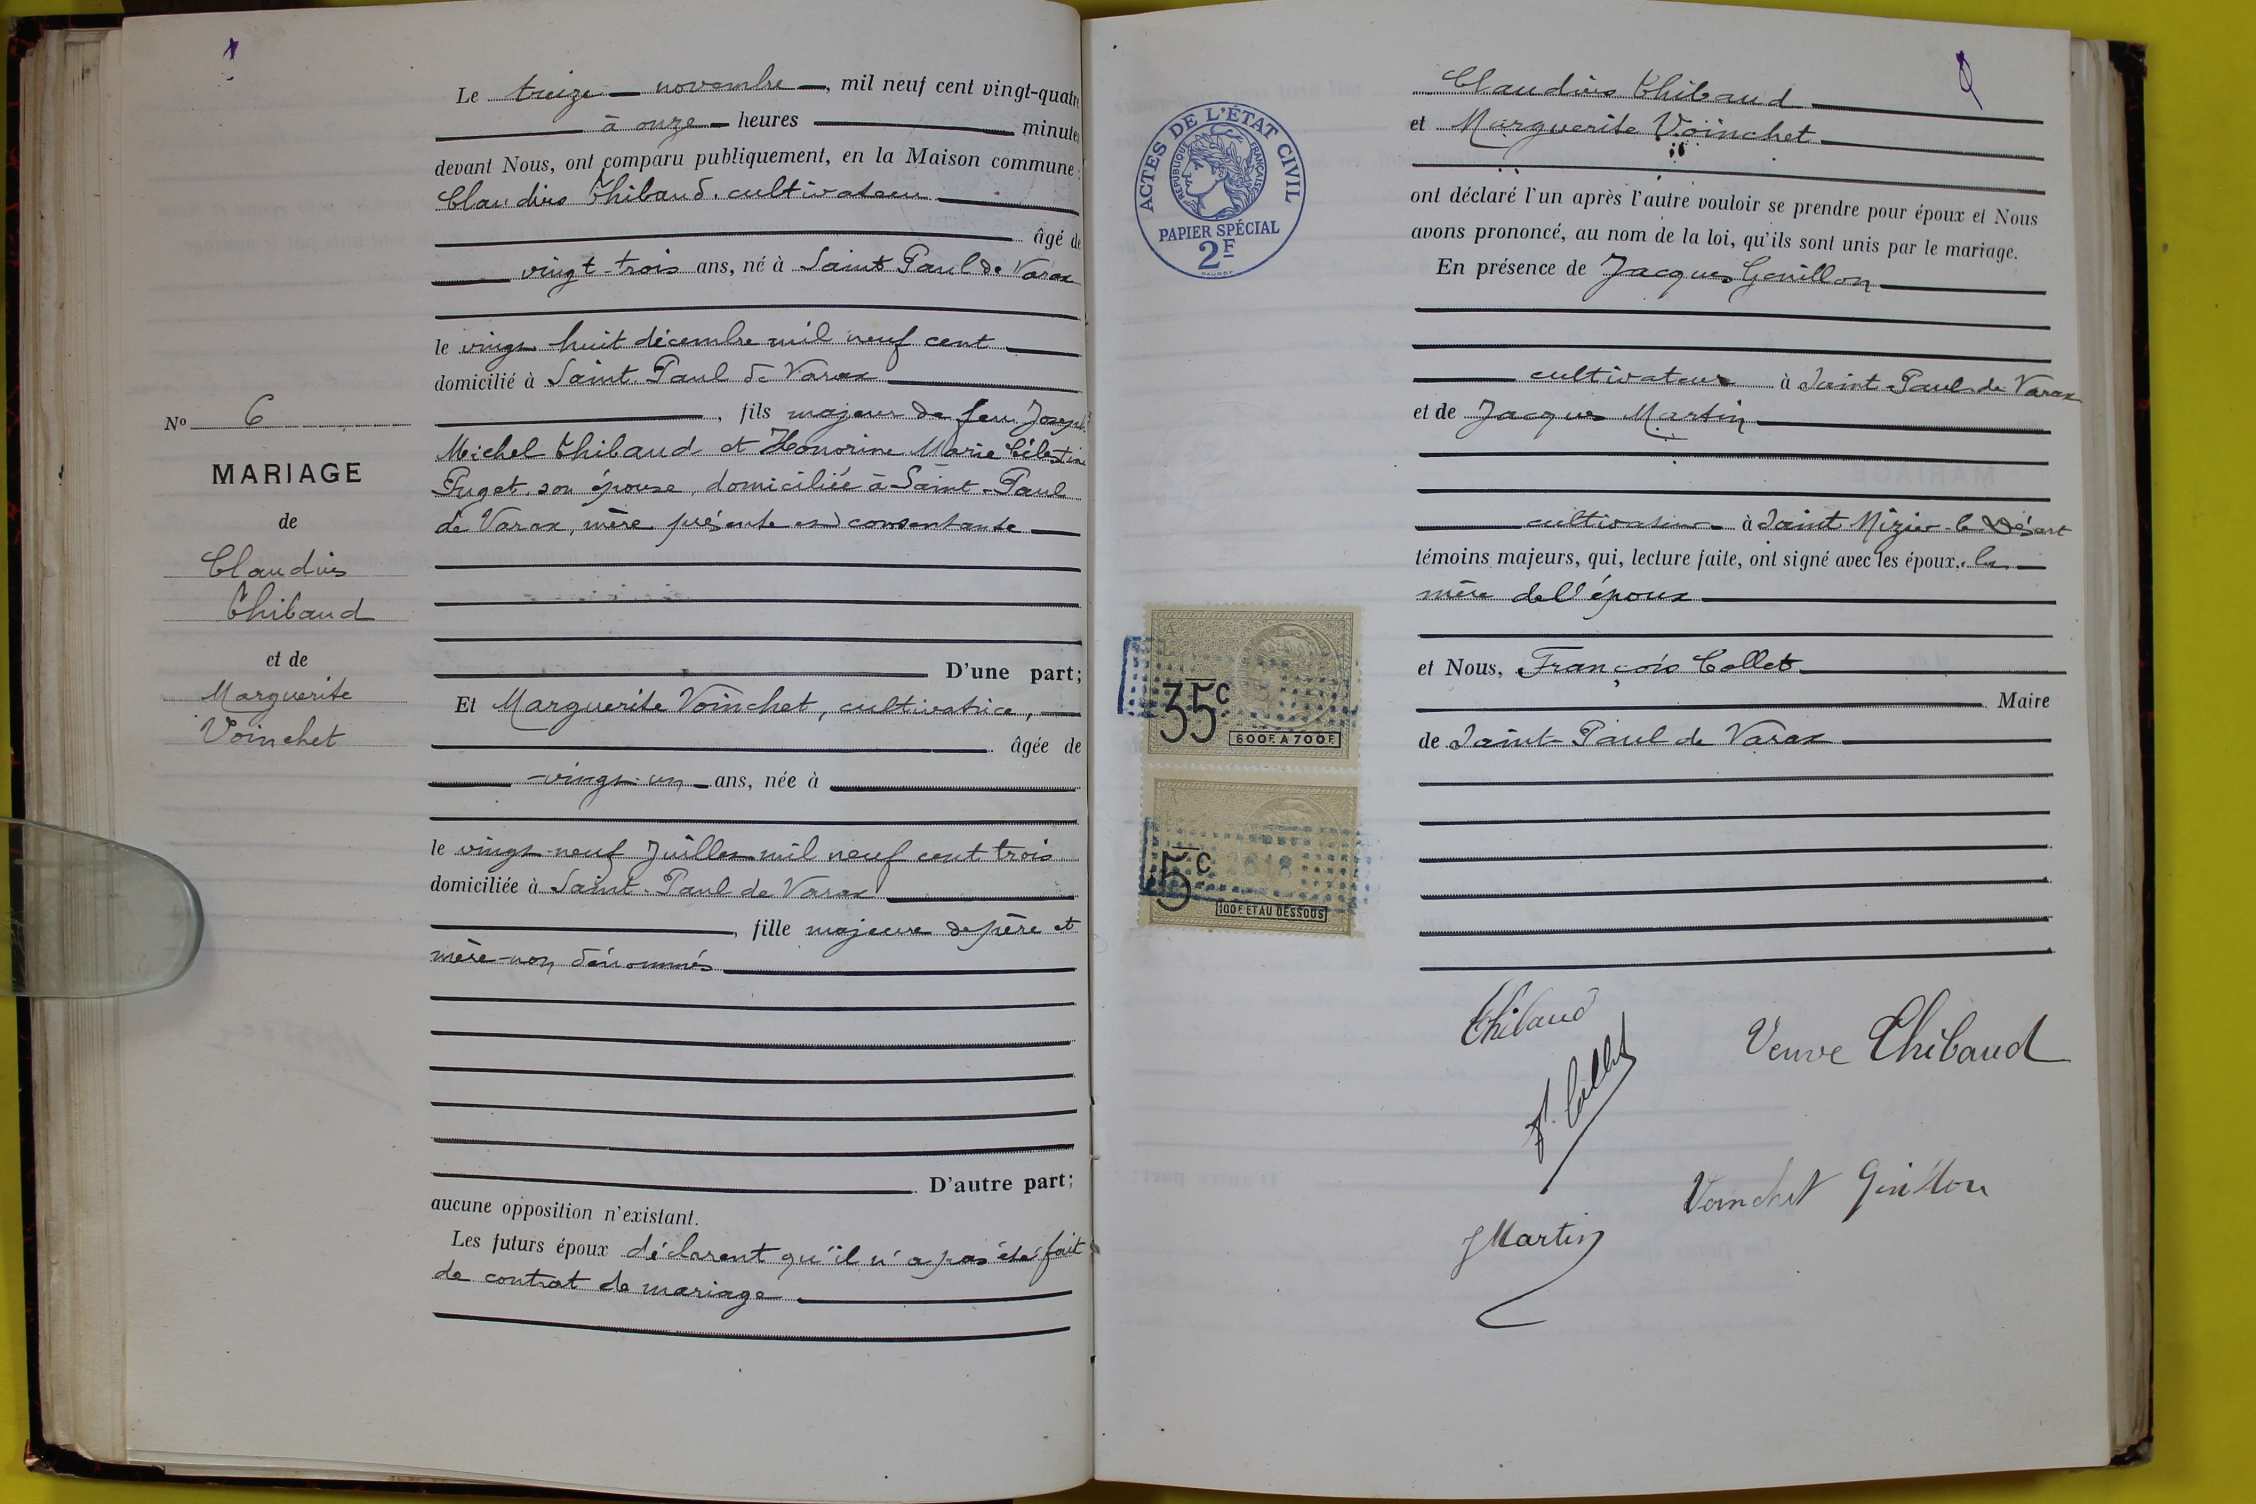 Le treize novembre, mil neuf cent vingt-quatre
à onze heures minutes
devant Nous, ont comparu publiquement, en la Maison commune :
Claudius Thibaud, cultivateur
âgé de
vingt-trois ans, né à Saint Paul de Varax
le vingt huit décembre mil neuf cent
domicilié à Saint Paul de Varax
, fils majeur de feu Joseph
Michel Thibaud et Honorine Marie Célestine
Puget son épouse, domiciliée à Saint-Paul
de Varax, mère présente et consentante
D'une part;
Et Marguerite Voinchet, cultivatrice,
âgée de
vingt-un ans, née à
le vingt-neuf Juillet mil neuf cent trois
domiciliée à Saint-Paul de Varax
, fille majeure de père et
mère non dénommés
D'autre part;
aucune opposition n'existant.
Les futurs époux déclarent qu'il n'a pas été fait
de contrat de mariage
No 6
MARIAGE
de
Claudius
Thibaud
et de
Marguerite
Voinchet
ACTES DE L'ÉTAT CIVIL
RÉPUBLIQUE FRANÇAISE
PAPIER SPÉCIAL
2F
35c
600F. A 700F.
5c
2618
100F. ET AU DESSOUS
Claudius Thibaud
et Marguerite Voinchet
ont déclaré l'un après l'autre vouloir se prendre pour époux et Nous
avons prononcé, au nom de la loi, qu'ils sont unis par le mariage.
En présence de Jacques Genillon
cultivateur à Saint-Paul de Varax
et de Jacques Martin
cultivateur à Saint Nizier-le Désert
témoins majeurs, qui, lecture faite, ont signé avec les époux, la
mère de l'époux
et Nous, François Collet
Maire
de Saint-Paul de Varax
Thibaud
Veuve Thibaud
F. Collet
Voinchet Genillon
J Martin